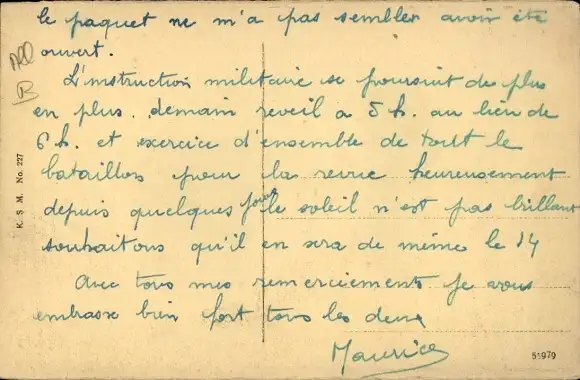 le paquet ne m'a pas sembler avoir été
ouvert.
L'instruction militaire se poursuit de plus
en plus. demain reveil a 5 h. au lieu de
6 h. et exercice d'ensemble de tout le
bataillon pour la revue heureusement
depuis quelques jours le soleil n'est pas brillant
souhaitons qu'il en sera de même le 14
Avec tous mes remerciements je vous
embrasse bien fort tous les deux
Maurice
All
B
K. S. M. No. 227
55979